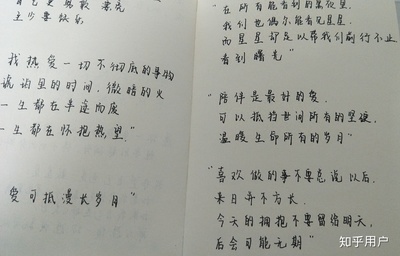 主少要快乐
我热爱一切不彻底的事物
谎话里的时间,微暗的火
一生都在半途而废
一生都在怀抱热望"
爱可抵漫长岁月"
"在所有能看到的黑夜里
我们也偶尔能看见星星
而星星却足以带我们前行不止
看到曙光"
"陪伴是最好的爱
可以抵挡世间所有的坚硬
温暖生命所有的岁月"
"喜欢做的事不要总说以后
来日并不方长
今天的拥抱不要留给明天,
后会可能无期"
知乎用户